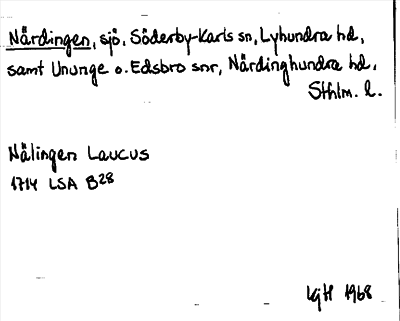 Närdingen, sjö, Söderby-Karls sn, Lyhundra hd,
samt Ununge o. Edsbro snr, Närdinghundra hd,
Sthlm. l.
Nälingen Laucus
1714 LSA B28
KjH 1968